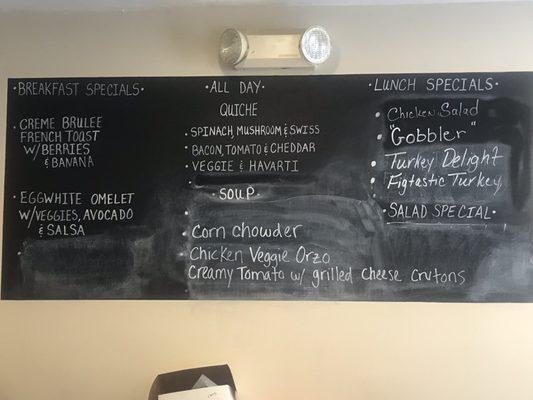 ·BREAKFAST SPECIALS·
·CREME BRULEE
FRENCH TOAST
W/BERRIES
& BANANA
·EGGWHITE OMELET
W/VEGGIES, AVOCADO
& SALSA
·ALL DAY·
QUICHE
·SPINACH, MUSHROOM & SWISS
·BACON, TOMATO & CHEDDAR
·VEGGIE & HAVARTI
·SOUP·
·Corn chowder
·Chicken Veggie Orzo
·Creamy Tomato w/ grilled cheese Crutons
·LUNCH SPECIALS·
·Chicken Salad
·"Gobbler"
·Turkey Delight
·Figtastic Turkey
·SALAD SPECIAL·